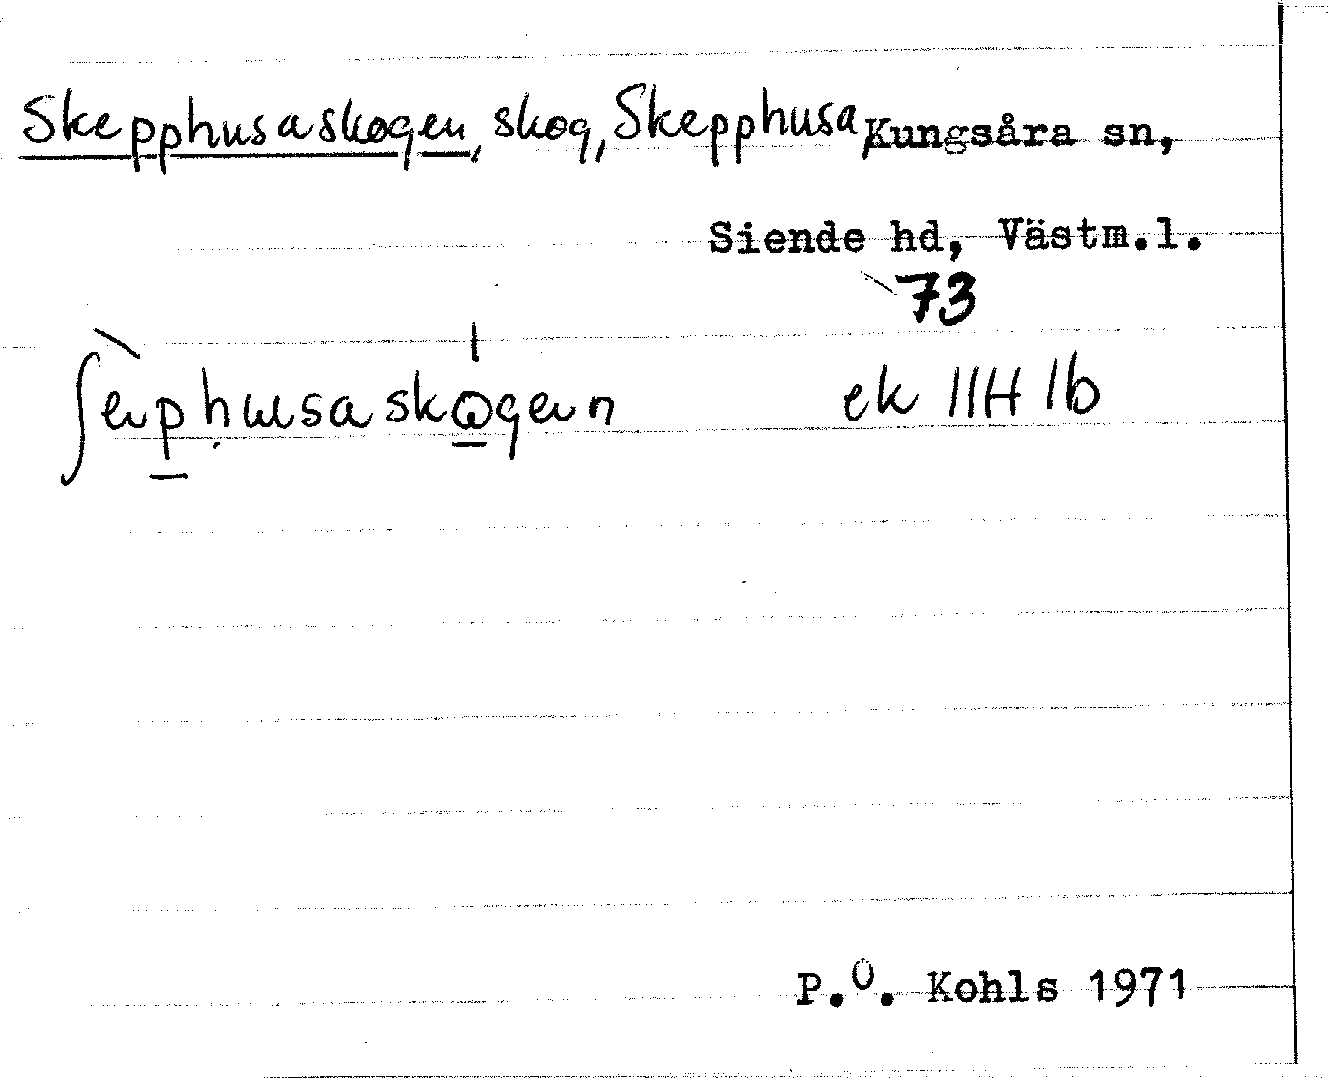 Skepphusaskogen, skog, Skepphusa Kungsåra sn,
Siende hd, Västm.l.
73
ek 11H 1b
P.O. Kohls 1971